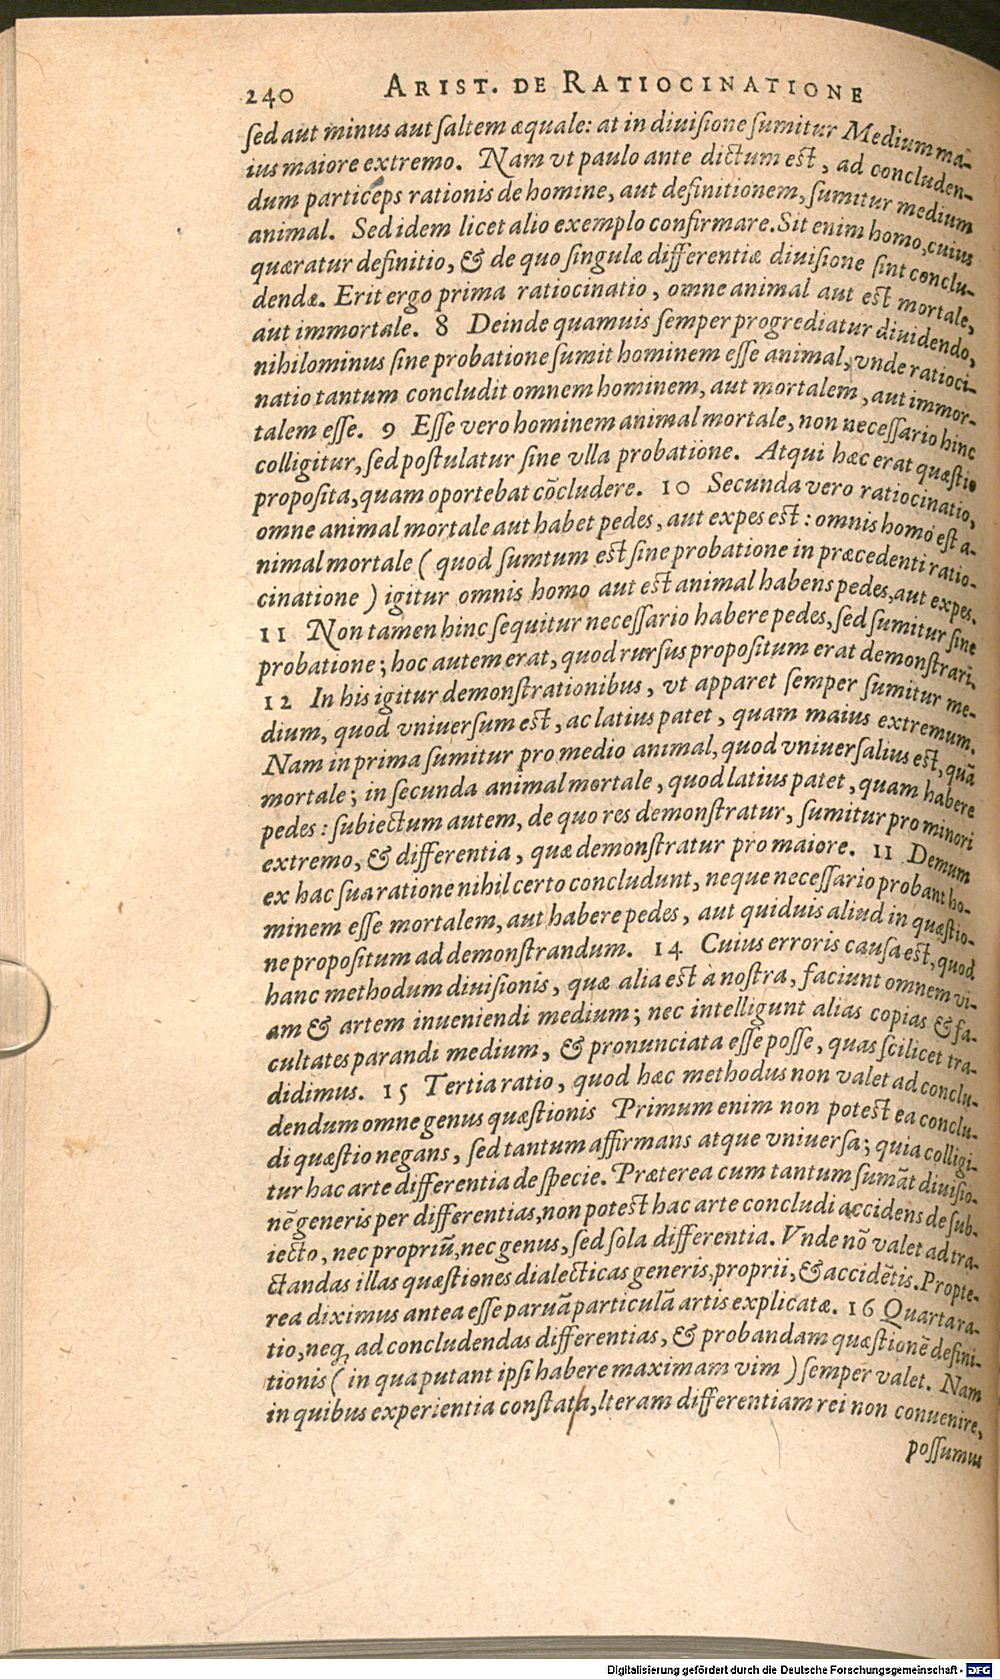 240 ARIST. DE RATIOCINATIONE
sed aut minus aut saltem æquale: at in diuisione sumitur Medium ma-
ius maiore extremo. Nam vt paulo ante dictum est, ad concluden-
dum particeps rationis de homine, aut definitionem, sumitur medium
animal. Sed idem licet alio exemplo confirmare. Sit enim homo, cuius
quæratur definitio, & de quo singulæ differentiæ diuisione sint conclu-
dendæ. Erit ergo prima ratiocinatio, omne animal aut est mortale,
aut immortale. 8 Deinde quamuis semper progrediatur diuidendo,
nihilominus sine probatione sumit hominem esse animal, vnde ratioci-
natio tantum concludit omnem hominem, aut mortalem, aut immor-
talem esse. 9 Esse vero hominem animal mortale, non necessario hinc
colligitur, sed postulatur sine vlla probatione. Atqui hæc erat quæstio
proposita, quam oportebat cõcludere. 10 Secunda vero ratiocinatio,
omne animal mortale aut habet pedes, aut expes est: omnis homo est a-
nimal mortale ( quod sumtum est sine probatione in præcedenti ratio-
cinatione ) igitur omnis homo aut est animal habens pedes, aut expes.
11 Non tamen hinc sequitur necessario habere pedes, sed sumitur sine
probatione; hoc autem erat, quod rursus propositum erat demonstrari.
12 In his igitur demonstrationibus, vt apparet semper sumitur me-
dium, quod vniuersum est, ac latius patet, quam maius extremum.
Nam in prima sumitur pro medio animal, quod vniuersalius est, quã
mortale; in secunda animal mortale, quod latius patet, quam habere
pedes: subiectum autem, de quo res demonstratur, sumitur pro minori
extremo, & differentia, quæ demonstratur pro maiore. 11 Demum
ex hac sua ratione nihil certo concludunt, neque necessario probant ho-
minem esse mortalem, aut habere pedes, aut quiduis aliud in quæstio-
ne propositum ad demonstrandum. 14 Cuius erroris causa est, quod
hanc methodum diuisionis, quæ alia est a nostra, faciunt omnem vi-
am & artem inueniendi medium; nec intelligunt alias copias & fa-
cultates parandi medium, & pronunciata esse posse, quas scilicet tra-
didimus. 15 Tertia ratio, quod hæc methodus non valet ad conclu-
dendum omne genus quæstionis Primum enim non potest ea conclu-
di quæstio negans, sed tantum affirmans atque vniuersa; quia colligi-
tur hac arte differentia de specie. Præterea cum tantum sumãt diuisio-
nẽ generis per differentias, non potest hac arte concludi accidens de sub-
iecto, nec propriũ, nec genus, sed sola differentia. Vnde nõ valet ad tra-
ctandas illas quæstiones dialecticas generis, proprii, & accidẽtis. Propte-
rea diximus antea esse paruã particulã artis explicatæ. 16 Quarta ra-
tio, neq, ad concludendas differentias, & probandam quæstionẽ defini-
tionis ( in qua putant ipsi habere maximam vim ) semper valet. Nam
in quibus experientia constat a,lteram differentiam rei non conuenire,
possumus
Digitalisierung gefördert durch die Deutsche Forschungsgemeinschaft - DFG